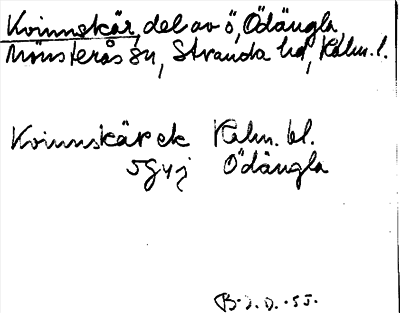 Kvinnskär, del av ö, Ödängla,
Mönsterås sn, Stranda hd, Kalm. l.
Kvinnskär ek Kalm. bl.
5G4j Ödängla
B.J.D. -55.